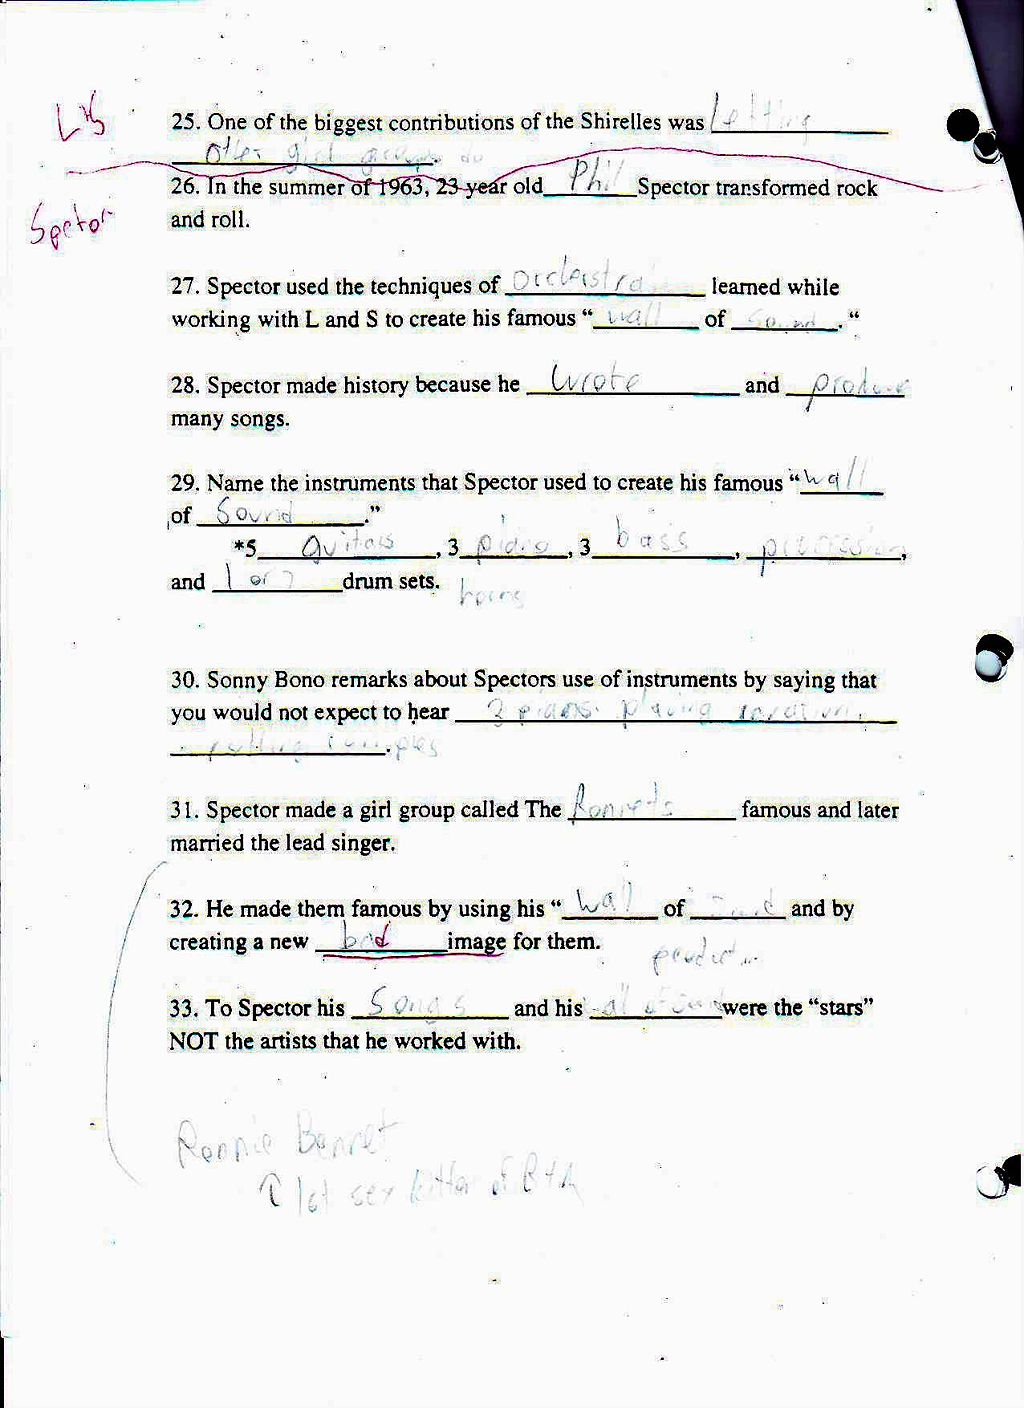 L+S
25. One of the biggest contributions of the Shirelles was letting
other girl groups do
26. In the summer of 1963, 23 year old Phil Spector transformed rock
Spector
and roll.
27. Spector used the techniques of Orchestra learned while
working with L and S to create his famous “wall of sound. “
28. Spector made history because he wrote and produce
many songs.
29. Name the instruments that Spector used to create his famous “wall
of Sound.”
*5 guitars, 3 piano, 3 bass,
and 1 or 2 drum sets.
horns
30. Sonny Bono remarks about Spectors use of instruments by saying that
you would not expect to hear 3 pianos playing
31. Spector made a girl group called The Ronnets famous and later
married the lead singer.
32. He made them famous by using his “wall of sound and by
creating a new bad image for them.
33. To Spector his Songs and his wall of sound were the “stars”
NOT the artists that he worked with.
Ronnie Bennet
↑ 1st sex kitten of R+R